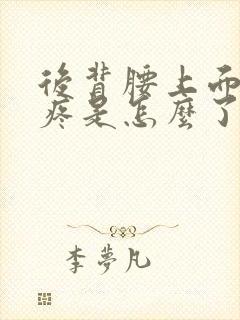 後背腰上面
疼是怎麼了
李夢凡